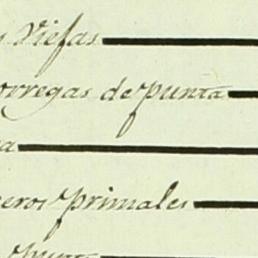 s Viejas
orregas de punta
a
neros primales